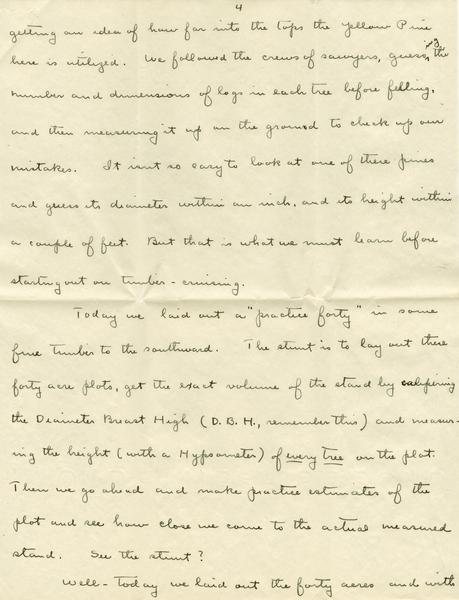 4
getting an idea of how far into the tops the Yellow Pine
here is utilized. We followed the crews of sawyers, guessing the
number and dimensions of logs in each tree before felling,
and then measuring it up on the ground to check up our
mistakes. It isnt so easy to look at one of these pines
and guess its diameter within an inch, and its height within
a couple of feet. But that is what we must learn before
starting out on timber-cruising.
Today we laid out a "practice forty" in some
fine timber to the southward. The stunt is to lay out these
forty acre plots, get the exact volume of the stand by calipering
the Diameter Breast High (D.B.H., remember this) and measur-
ing the height (with a Hypsometer) of every tree on the plat.
Then we go ahead and make practice estimates of the
plot and see how close we come to the actual measured
stand. See the stunt?
Well - today we laid out the forty acres and with